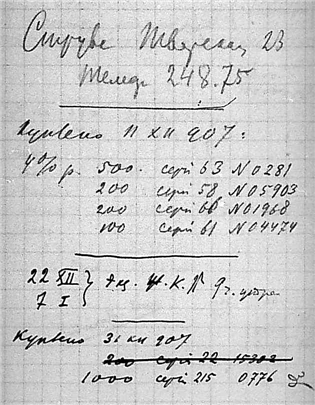 Струве Тверская 23
Телеф 248.75
Куплено 11 XII 907:
4% р. 500. серії 63 № 0281
200 серії 58 № 05903
200 серії 66 № 01968
100 серії 61 № 04474
22 XII
7 I
9 ч. утра
Куплено 31 XII 907
200 серії 22 15302
1000 серії 215 0776